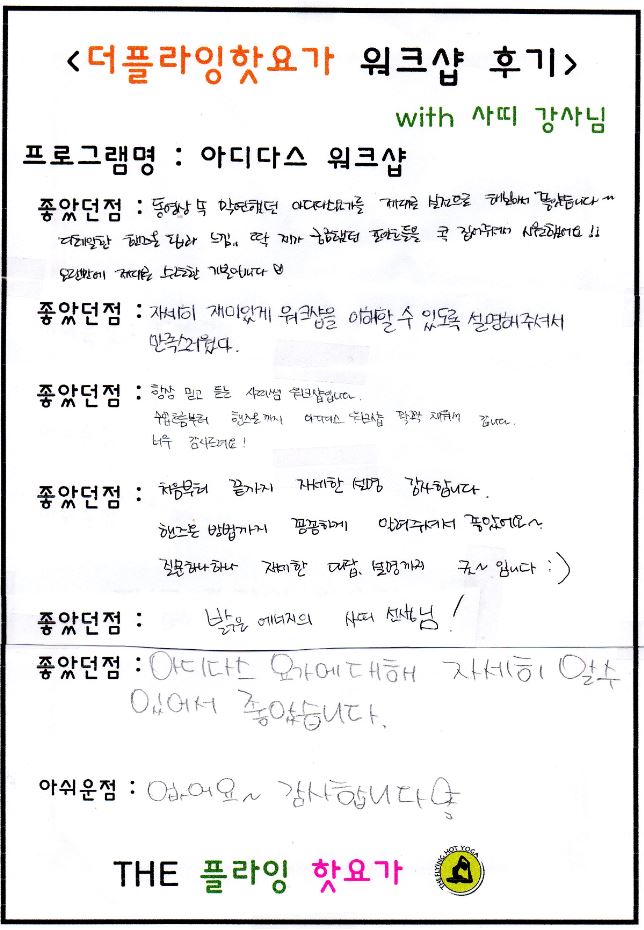 <더플라잉핫요가 워크샵 후기>
with 사띠 강사님
프로그램명 : 아디다스 워크샵
좋았던점 : 동영상 속 막연했던 아디다스요가를 제대로 실전으로 해봐서 좋았습니다~
디테일한 핸즈온 답과 느낌, 딱 제가 궁금했던 포인트들을 콕 집어주셔서 시원했어요!!
오랜만에 제대로 수련한 기분입니다♡
좋았던점 : 자세히 재미있게 워크샵을 이해할 수 있도록 설명해주셔서
만족스러웠다.
좋았던점 : 항상 믿고 듣는 사띠쌤 워크샵입니다.
수업흐름부터 핸즈온까지 아디다스 워크샵 꽉꽉 채워서 갑니다.
너무 감사드려요!
좋았던점 : 처음부터 끝까지 자세한 설명 감사합니다.
핸즈온 방법까지 꼼꼼하게 알려주셔서 좋았어요~
질문하나하나 자세한 대답, 설명까지 굿~입니다 :)
좋았던점 : 밝은 에너지의 사띠 선생님!
좋았던점 : 아디다스 요가에대해 자세히 알수
있어서 좋았습니다.
아쉬운점 : 없어요~ 감사합니다
THE 플라잉 핫요가
THE FLYING HOT YOGA